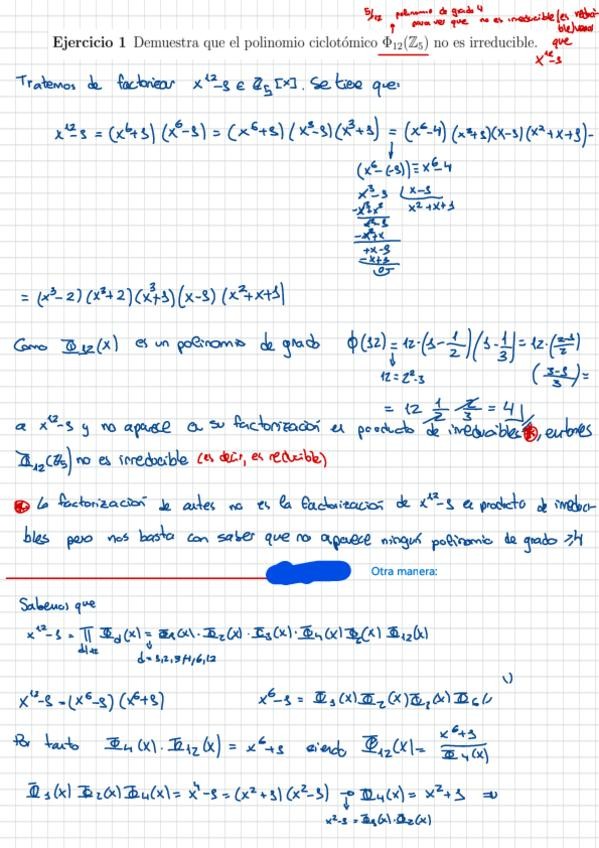 5/12 polinomio de grado 4
para ver que no es irreducible (es reducible) veamos que
x¹²-1
Ejercicio 1 Demuestra que el polinomio ciclotómico Φ₁₂(ℤ₅) no es irreducible.
Tratemos de factorizar x¹²-1 ∈ ℤ₅[x]. Se tiene que:
x¹²-1 = (x⁶+1)(x⁶-1) = (x⁶+1)(x³-1)(x³+1) = (x⁶-4)(x³+1)(x-1)(x²+x+1)=
(x⁶-(-1)) ≡ x⁶-4
x³-1 | x-1
-x³+x² x²+x+1
x²-1
-x²+x
+x-1
-x+1
0
= (x³-2)(x³+2)(x³+1)(x-1)(x²+x+1)
Como Φ₁₂(x) es un polinomio de grado φ(12) = 12·(1-1/2)(1-1/3) = 12·((2-1)/2)
12=2²·3 ((3-1)/3) =
= 12 1/2 2/3 = 4
a x¹²-1 y no aparece en su factorización en producto de irreducibles, entonces
Φ₁₂(ℤ₅) no es irreducible (es decir, es reducible)
La factorización de antes no es la factorización de x¹²-1 en producto de irreduci-
bles pero nos basta con saber que no aparece ningún polinomio de grado ≥4
Otra manera:
Sabemos que
x¹²-1 = ∏ Φd(x) = Φ₁(x)·Φ₂(x)·Φ₃(x)·Φ₄(x)Φ₆(x)Φ₁₂(x)
d|12 d=1,2,3,4,6,12
x¹²-1=(x⁶-1)(x⁶+1) x⁶-1 = Φ₁(x)Φ₂(x)Φ₃(x)Φ₆(
Por tanto Φ₄(x)·Φ₁₂(x) = x⁶+1 siendo Φ₁₂(x) = (x⁶+1)/Φ₄(x)
Φ₁(x)Φ₂(x)Φ₄(x) = x⁴-1 = (x²+1)(x²-1) → Φ₄(x) = x²+1 ⇒
x²-1 = Φ₁(x)·Φ₂(x)